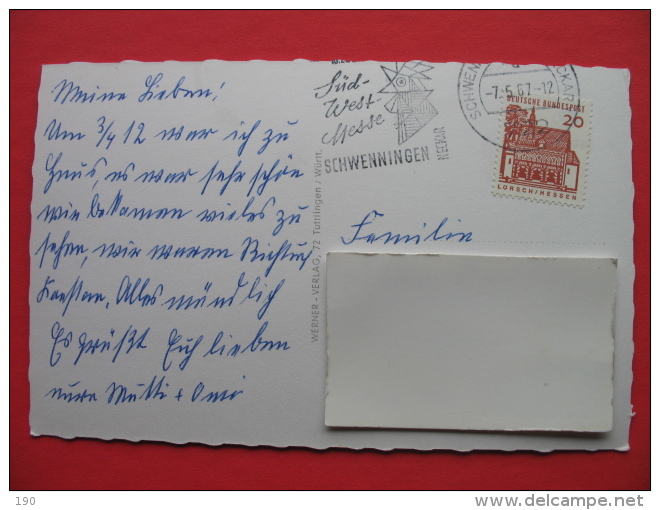 Meine Lieben!
Um 3/4 12 war ich zu
Haus, es war sehr schön
wir bekamen vieles zu
sehen, wir waren Richtung
Alles mündlich
Es grüßt Euch lieben
eure Mutti + Omi
WERNER - VERLAG, 72 Tuttlingen / Württ.
Süd-
West-
Messe
SCHWENNINGEN
NECKAR
-7.-5.67.-12
DEUTSCHE BUNDESPOST
20
LORSCH/HESSEN
Familie
190
delcampe.net